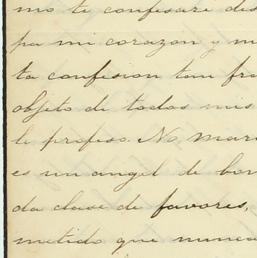 mo te confesaré dis
pa mi corazon y m
ta confesion tan fra
objeto de todos mis
le profeso. No, Mari
es un angel de bon
da clase de favores,
metido que nunca